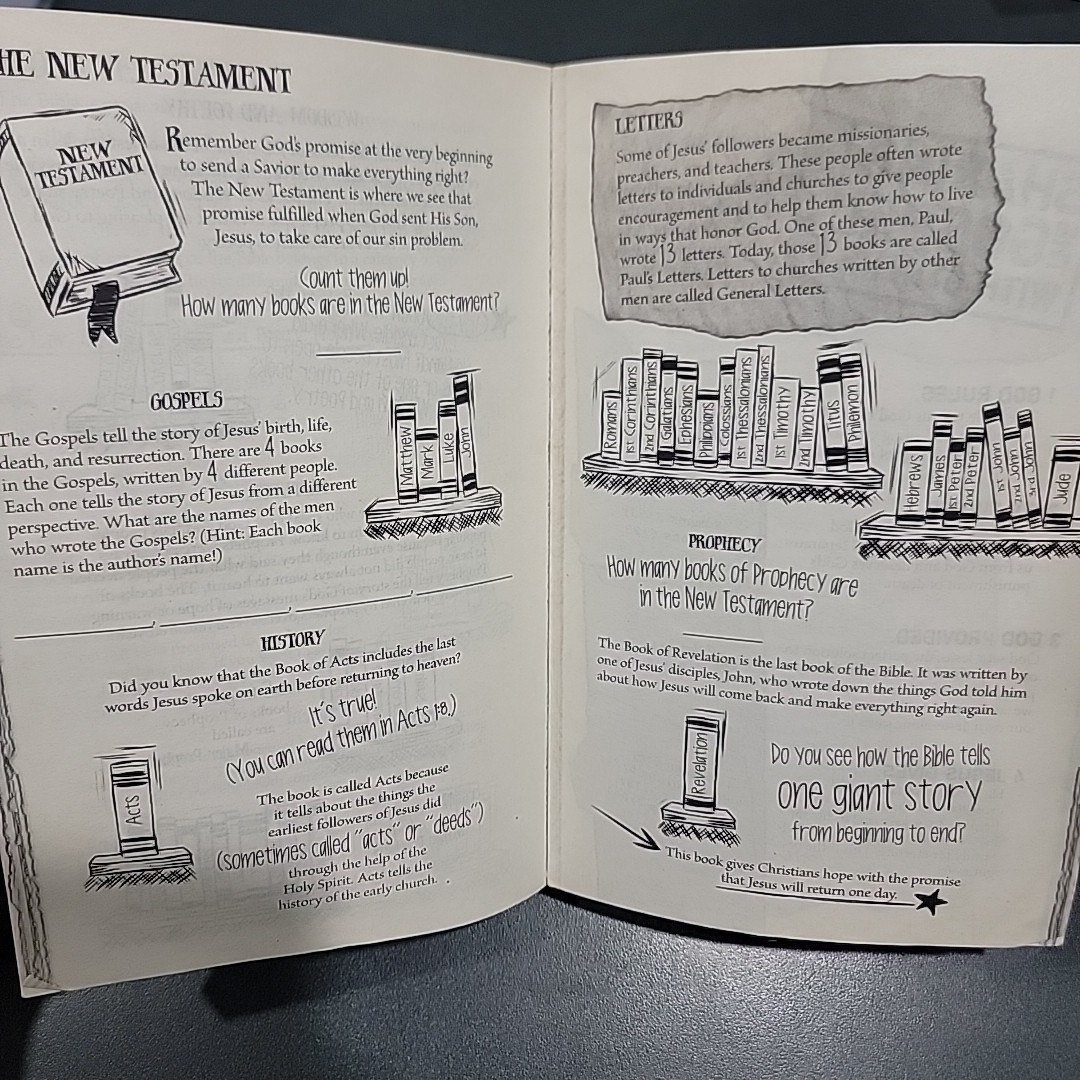 HE NEW TESTAMENT
NEW
TESTAMENT
Remember God's promise at the very beginning
to send a Savior to make everything right?
The New Testament is where we see that
promise fulfilled when God sent His Son,
Jesus, to take care of our sin problem.
Count them up!
How many books are in the New Testament?
GOSPELS
The Gospels tell the story of Jesus' birth, life,
death, and resurrection. There are 4 books
in the Gospels, written by 4 different people.
Each one tells the story of Jesus from a different
perspective. What are the names of the men
who wrote the Gospels? (Hint: Each book
name is the author's name!)
Matthew
Mark
Luke
John
HISTORY
Did you know that the Book of Acts includes the last
words Jesus spoke on earth before returning to heaven?
It's true!
(You can read them in Acts 1:8.)
Acts
The book is called Acts because
it tells about the things the
earliest followers of Jesus did
(sometimes called "acts" or "deeds")
through the help of the
Holy Spirit. Acts tells the
history of the early church.
LETTERS
Some of Jesus' followers became missionaries,
preachers, and teachers. These people often wrote
letters to individuals and churches to give people
encouragement and to help them know how to live
in ways that honor God. One of these men, Paul,
wrote 13 letters. Today, those 13 books are called
Paul's Letters. Letters to churches written by other
men are called General Letters.
Romans
1st Corinthians
2nd Corinthians
Galatians
Ephesians
Philippians
Colossians
1st Thessalonians
2nd Thessalonians
1st Timothy
2nd Timothy
Titus
Philemon
Hebrews
James
1st Peter
2nd Peter
1st John
2nd John
3rd John
Jude
PROPHECY
How many books of Prophecy are
in the New Testament?
The Book of Revelation is the last book of the Bible. It was written by
one of Jesus' disciples, John, who wrote down the things God told him
about how Jesus will come back and make everything right again.
Revelation
Do you see how the Bible tells
one giant story
from beginning to end?
This book gives Christians hope with the promise
that Jesus will return one day.